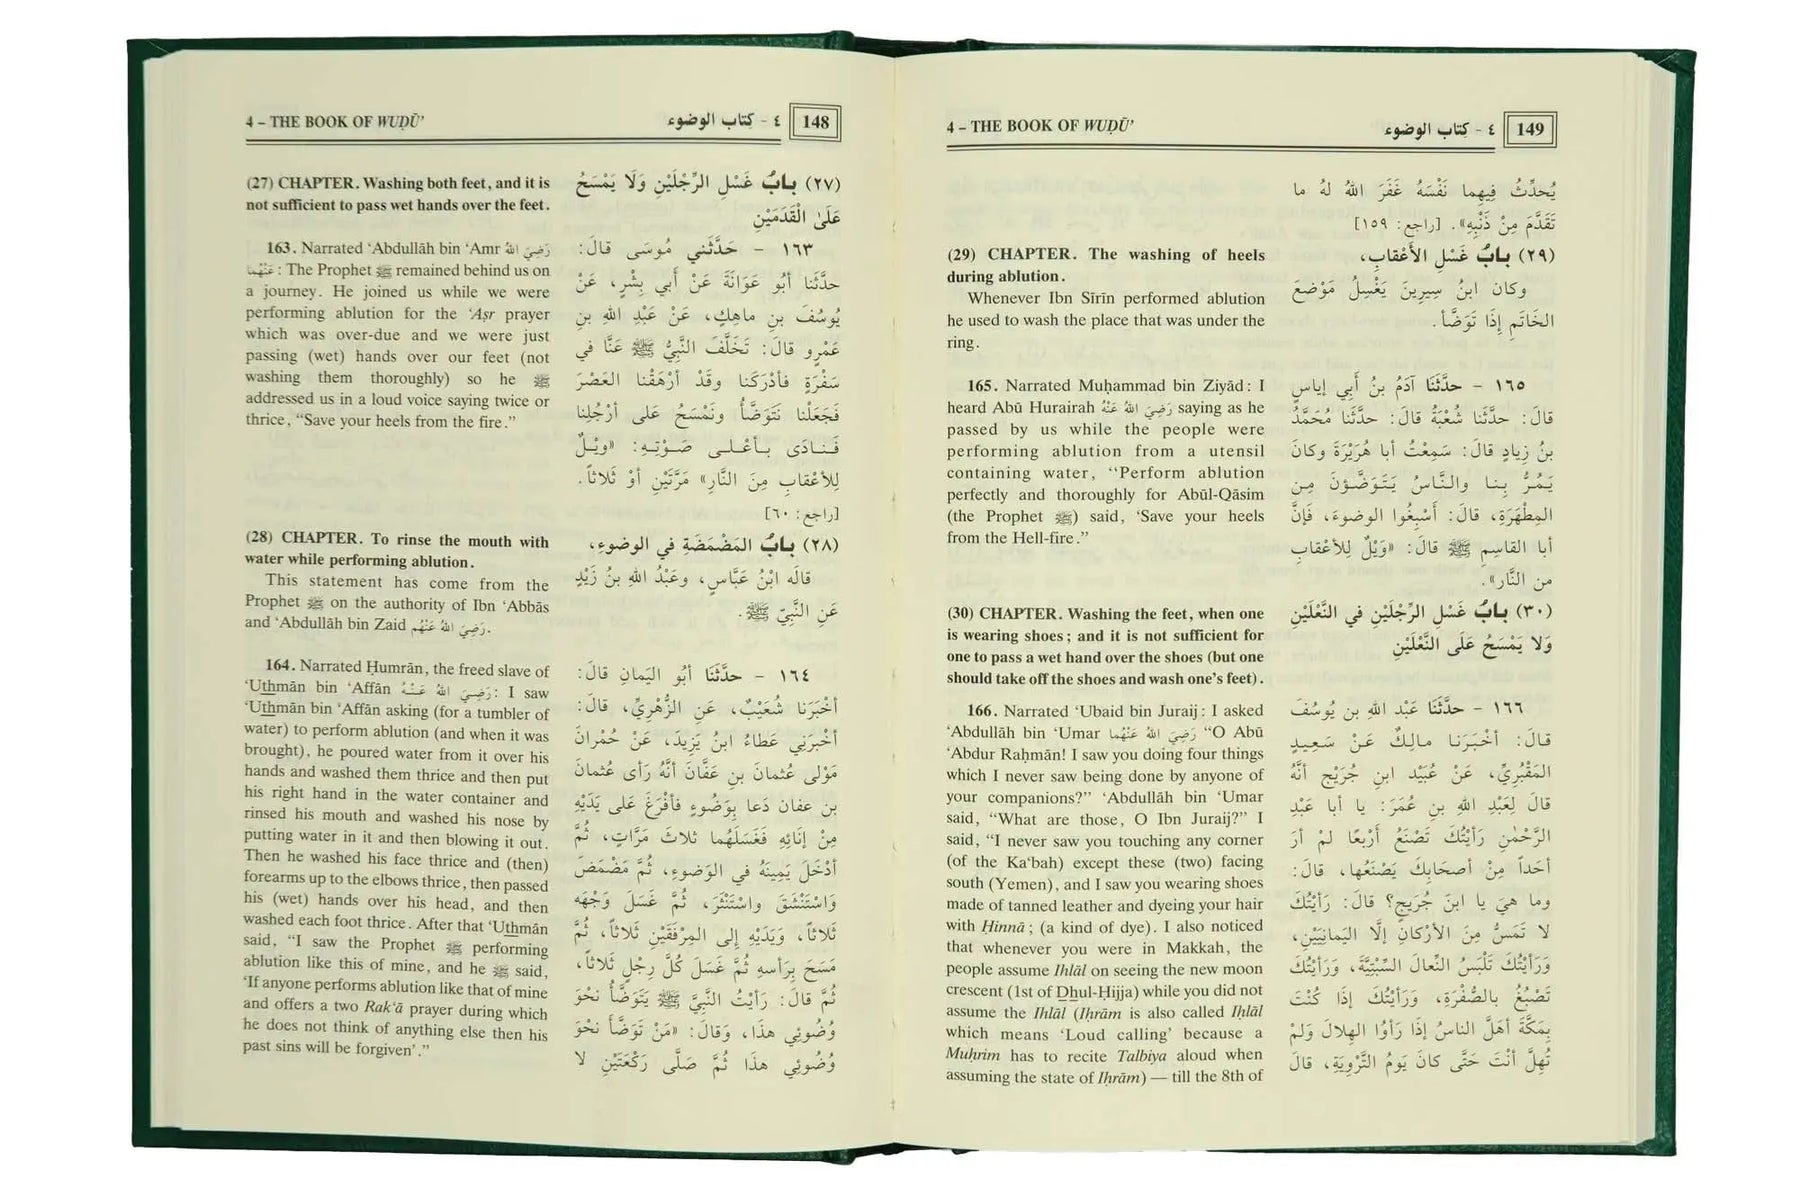 4 – THE BOOK OF WUḌŪ’
٤ - كتاب الوضوء
148
(27) CHAPTER. Washing both feet, and it is
not sufficient to pass wet hands over the feet.
163. Narrated ‘Abdullāh bin ‘Amr رَضِيَ اللهُ
عَنْهُما: The Prophet ﷺ remained behind us on
a journey. He joined us while we were
performing ablution for the ‘Aṣr prayer
which was over-due and we were just
passing (wet) hands over our feet (not
washing them thoroughly) so he ﷺ
addressed us in a loud voice saying twice or
thrice, “Save your heels from the fire.”
(28) CHAPTER. To rinse the mouth with
water while performing ablution.
This statement has come from the
Prophet ﷺ on the authority of Ibn ‘Abbās
and ‘Abdullāh bin Zaid رَضِيَ اللهُ عَنْهُم.
164. Narrated Ḥumrān, the freed slave of
‘Uthmān bin ‘Affān رَضِيَ اللهُ عَنْهُ: I saw
‘Uthmān bin ‘Affān asking (for a tumbler of
water) to perform ablution (and when it was
brought), he poured water from it over his
hands and washed them thrice and then put
his right hand in the water container and
rinsed his mouth and washed his nose by
putting water in it and then blowing it out.
Then he washed his face thrice and (then)
forearms up to the elbows thrice, then passed
his (wet) hands over his head, and then
washed each foot thrice. After that ‘Uthmān
said, “I saw the Prophet ﷺ performing
ablution like this of mine, and he ﷺ said,
‘If anyone performs ablution like that of mine
and offers a two Rak‘ā prayer during which
he does not think of anything else then his
past sins will be forgiven’.”
(٢٧) بابُ غَسْلِ الرِّجْلَيْنِ وَلَا يَمْسَحُ
عَلَىٰ الْقَدَمَيْنِ
١٦٣ - حَدَّثَني مُوسَى قالَ:
حدَّثَنا أبُو عَوَانَةَ عَنْ أبي بِشْرٍ، عَنْ
يُوسُفَ بنِ ماهِكٍ، عَنْ عَبْدِ اللهِ بنِ
عَمْرٍو قالَ: تَخَلَّفَ النَّبيُّ ﷺ عَنَّا في
سَفْرَةٍ فأدْرَكَنا وقَدْ أرْهَقْنا العَصْرَ
فَجَعَلْنا نَتَوَضَّأُ ونَمْسَحُ على أرْجُلِنا
فَنادَى بأعْلى صَوْتِهِ: «ويْلٌ
لِلأعْقابِ مِنَ النَّارِ» مَرَّتَيْنِ أوْ ثَلاثاً.
[راجع: ٦٠]
(٢٨) بابُ المَضْمَضَةِ في الوضوءِ،
قالَه ابْنُ عَبَّاسٍ، وعَبْدُ اللهِ بنُ زَيْدٍ
عَنِ النَّبيِّ ﷺ.
١٦٤ - حدَّثَنَا أبُو اليَمانِ قالَ:
أخْبَرَنا شُعَيْبٌ، عَنِ الزُّهْرِيِّ، قالَ:
أخْبرَنِي عَطاءُ ابنُ يَزِيدَ، عَنْ حُمْرانَ
مَوْلى عُثمانَ بنِ عَفَّانَ أنَّهُ رَأى عُثمانَ
بن عفان دَعا بِوَضُوءٍ فأفْرَغَ عَلى يَدَيْهِ
مِنْ إنَائِهِ فَغَسَلَهُما ثلاثَ مَرَّاتٍ، ثُمَّ
أدْخَلَ يَمِينَهُ في الوَضوءِ، ثُمَّ مَضْمَضَ
وَاسْتَنْشَقَ واسْتَنْثَرَ، ثُمَّ غَسَلَ وَجْهَه
ثَلاثاً، ويَدَيْهِ إلى المِرْفَقَيْنِ ثَلاثاً، ثُمَّ
مَسَحَ بِرَأسِهِ ثُمَّ غَسَلَ كُلَّ رِجْلٍ ثَلاثاً،
ثُمَّ قالَ: رَأيْتُ النَّبيَّ ﷺ يَتَوَضَّأُ نَحْوَ
وُضُوئِي هذَا، وَقالَ: «مَنْ تَوَضَّأ نَحْوَ
وُضُوئِي هذَا ثُمَّ صَلَّى رَكْعَتَيْنِ لا
4 – THE BOOK OF WUḌŪ’
٤ - كِتاب الوضوء
149
(29) CHAPTER. The washing of heels
during ablution.
Whenever Ibn Sīrīn performed ablution
he used to wash the place that was under the
ring.
165. Narrated Muḥammad bin Ziyād: I
heard Abū Hurairah رَضِيَ اللهُ عَنْهُ saying as he
passed by us while the people were
performing ablution from a utensil
containing water, “Perform ablution
perfectly and thoroughly for Abūl-Qāsim
(the Prophet ﷺ) said, ‘Save your heels
from the Hell-fire.”
(30) CHAPTER. Washing the feet, when one
is wearing shoes; and it is not sufficient for
one to pass a wet hand over the shoes (but one
should take off the shoes and wash one’s feet).
166. Narrated ‘Ubaid bin Juraij: I asked
‘Abdullāh bin ‘Umar رَضِيَ اللهُ عَنْهُما “O Abū
‘Abdur Raḥmān! I saw you doing four things
which I never saw being done by anyone of
your companions?” ‘Abdullāh bin ‘Umar
said, “What are those, O Ibn Juraij?” I
said, “I never saw you touching any corner
(of the Ka‘bah) except these (two) facing
south (Yemen), and I saw you wearing shoes
made of tanned leather and dyeing your hair
with Ḥinnā; (a kind of dye). I also noticed
that whenever you were in Makkah, the
people assume Ihlāl on seeing the new moon
crescent (1st of Dhul-Ḥijja) while you did not
assume the Ihlāl (Iḥrām is also called Ihlāl
which means ‘Loud calling’ because a
Muḥrim has to recite Talbiya aloud when
assuming the state of Iḥrām) — till the 8th of
يُحدِّثُ فِيهِما نَفْسَهُ غَفَرَ اللهُ لهُ ما
تَقَدَّمَ مِنْ ذَنْبِهِ». [راجع: ١٥٩]
(٢٩) بابُ غَسْلِ الأعْقابِ،
وكان ابنُ سِيرِينَ يَغْسِلُ مَوْضعَ
الخاتَمِ إذَا تَوَضَّأ.
١٦٥ - حدَّثَنَا آدَمُ بنُ أبي إياسٍ
قالَ: حدَّثَنا شُعْبَةُ قالَ: حدَّثَنا مُحَمَّدُ
بنُ زِيادٍ قالَ: سَمِعْتُ أبا هُرَيْرَةَ وكانَ
يَمُرُّ بِنا والنَّاسُ يَتَوَضَّؤونَ مِنَ
المِطْهَرَةِ، قالَ: أَسْبِغُوا الوضوءَ، فَإنَّ
أبا القاسِمِ ﷺ قالَ: «وَيْلٌ لِلأعْقابِ
من النَّارِ».
(٣٠) بابُ غَسْلِ الرِّجْلَيْنِ في النَّعْلَيْنِ
وَلا يَمْسَحُ عَلَى النَّعْلَيْنِ
١٦٦ - حدَّثَنَا عَبْد اللهِ بن يُوسُفَ
قالَ: أخْبَرَنا مالِكٌ عَنْ سَعِيدٍ
المَقْبُرِيِّ، عَنْ عُبَيْد ابنِ جُرَيْجٍ أنَّهُ
قالَ لِعَبْدِ اللهِ بنِ عُمَرَ: يا أبا عَبْدِ
الرَّحْمٰنِ رَأيْتُكَ تَصْنَعُ أرْبعًا لَمْ أرَ
أحَداً مِنْ أصحَابِكَ يَصْنَعُها، قالَ:
وما هيَ يا ابنَ جُرَيجٍ؟ قالَ: رَأيْتُكَ
لا تَمَسُّ مِنَ الأرْكانِ إلَّا اليَمانِيَيْنِ،
وَرَأيْتُكَ تَلْبَسُ النِّعالَ السِّبْتِيَّةَ، وَرَأيْتُكَ
تَصْبُغُ بالصُّفْرَةِ، وَرَأيْتُكَ إذَا كُنْتَ
بِمَكَّةَ أهَلَّ الناسُ إذَا رَأوُا الهِلالَ ولَمْ
تُهِلَّ أنْتَ حَتَّى كانَ يَومُ التَّرْوِيَةِ، قالَ